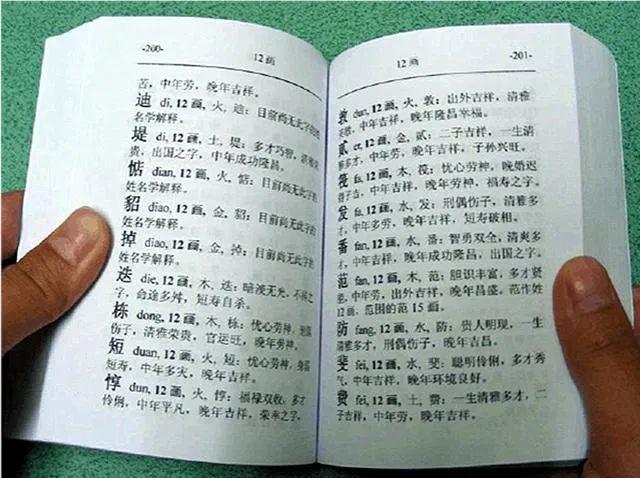 -200-
12画
苦，中年劳，晚年吉祥。
迪 di, 12画, 火, 迪：目前尚无此字的姓
名学解释。
堤 di, 12画, 土, 堤：多才巧智，清雅荣
贵，出国之字，中年成功隆昌。
惦 dian, 12画, 火, 惦：目前尚无此字的
姓名学解释。
貂 diao, 12画, 金, 貂：目前尚无此字的
姓名学解释。
掉 diao, 12画, 金, 掉：目前尚无此字的
姓名学解释。
迭 die, 12画, 木, 迭：暗淡无光，不祥之
字，命途多舛，短寿自杀。
栋 dong, 12画, 木, 栋：忧心劳神，
伤子，清雅荣贵，官运旺，晚年劳神。
短 duan, 12画, 火, 短：忧心劳神，身
短寿，中年多灾，晚年吉祥。
惇 dun, 12画, 火, 惇：福禄双收，多才
伶俐，中年平凡，晚年吉祥，荣幸之字。
12画
-201-
敦 dun, 12画, 火, 敦：出外吉祥，清雅
英敏，中年吉祥，晚年隆昌幸福。
贰 er, 12画, 金, 贰：二子吉祥，一生清
雅多才，中年劳，晚年吉祥，子孙兴旺。
筏 fa, 12画, 木, 筏：忧心劳神，晚婚迟
得子吉，中年吉祥，晚年劳神，福寿之字。
发 fa, 12画, 水, 发：刑偶伤子，清雅多
才，中年多劳，晚年吉祥，短寿破相。
番 fan, 12画, 水, 番：智勇双全，清爽多
才，中年吉祥，晚年成功隆昌，出国之字。
范 fan, 12画, 木, 范：胆识丰富，多才贤
能，中年劳，出外吉祥，晚年昌盛。范作姓
12画，范围的范15画。
防 fang, 12画, 水, 防：贵人明现，一生
清雅多才，刑偶伤子，晚年吉昌。
斐 fei, 12画, 水, 斐：聪明伶俐，多才秀
气，中年吉祥，晚年环境良好。
费 fei, 12画, 土, 费：一生清雅多才，二
子吉祥，中年劳，晚年吉祥。